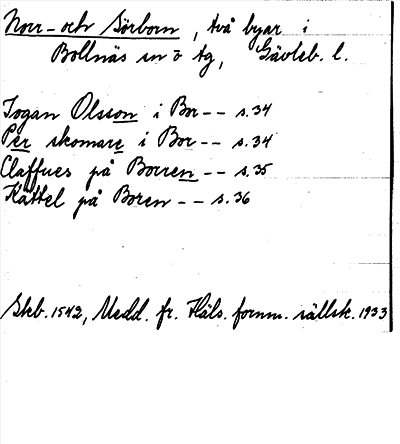 Norr- och Sörborn, två byar i
Bollnäs sn o tg, Gävleb. l.
Jogan Olsson i Bor -- s. 34
Per skomare i Bor -- s. 34
Claffues på Borren -- s. 35
Kättel på Boren -- s. 36
Skb. 1542, Medd. fr. Häls. fornm. sällsk. 1933